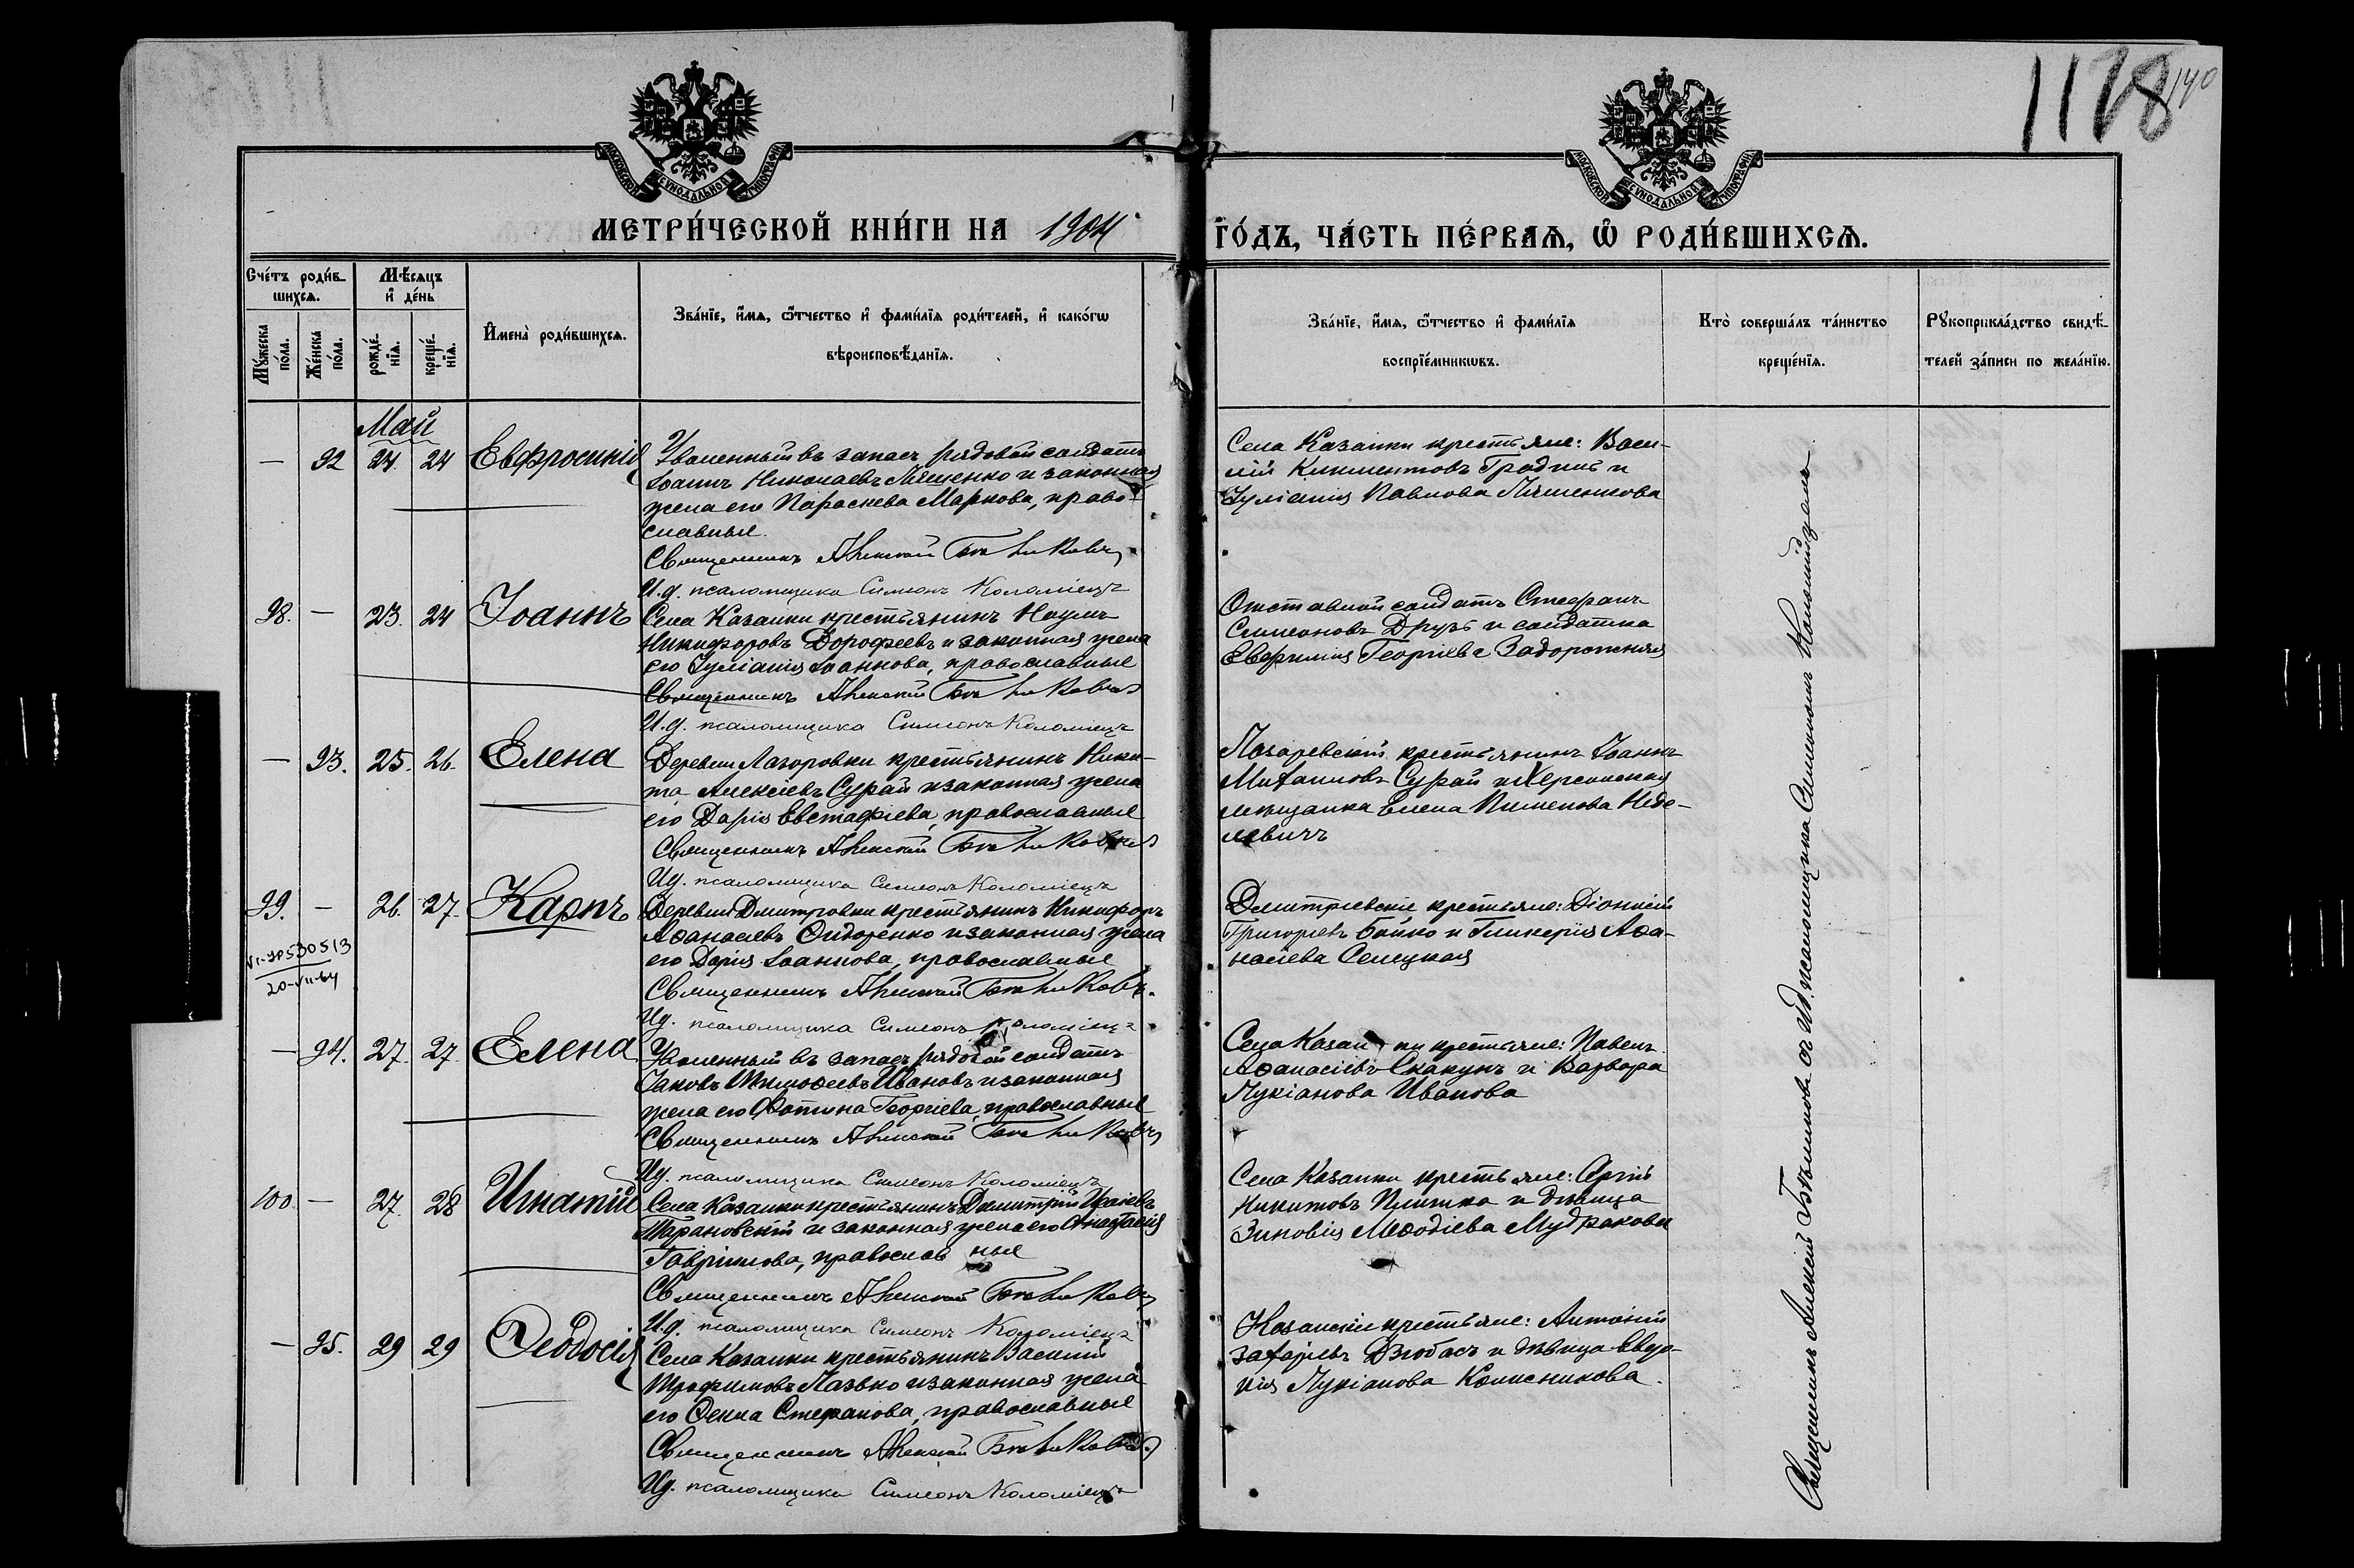 1118
140
МОСКОВСКОЙ СУНОДАЛЬНОЙ ТИПОГРАФІИ
МОСКОВСКОЙ СУНОДАЛЬНОЙ ТИПОГРАФІИ
МЕТРИ́ЧЕСКОЙ КНИ́ГИ НА 1904
ГО́ДЪ, ЧА́СТЬ ПЕ́РВАѦ, Ѽ РОДИ́ВШИХСѦ.
Сче́тъ роди́в-
шихсѧ.
Мѣ́сяцъ
и҆ де́нь
Мꙋ́жеска
по́ла.
Же́нска
по́ла.
рожде́-
нїѧ.
креще́-
нїѧ.
И҆мена̀ роди́вшихсѧ.
Зва́нїе, и҆́мѧ, ѻ҆́тчество и҆ фами́лїѧ роди́телей, и҆ како́гѡ
вѣроисповѣ́данїѧ.
Зва́нїе, и҆́мѧ, ѻ҆́тчество и҆ фами́лїѧ
воспрїе́мникѡвъ.
Кто̀ соверша́лъ та́инство
креще́нїѧ.
Рꙋкоприкла́дство свидѣ́-
телей за́писи по жела́нїю.
Май
— 92 24. 24 Евфросинія
Уволенный въ запасъ рядовой солдатъ
Іоаннъ Николаевъ Ляшенко и законная
жена его Параскева Маркова, право-
славные.
Священникъ Алексій
И.д. псаломщика Симеонъ Коломіецъ
Села Казанки крестьяне: Васи-
лій Климентовъ Гродпиъ и
Іуліанія Павлова Ляшенкова
98. — 23. 24 Іоаннъ
Села Казанки крестьянинъ Наумъ
Никифоровъ Дорофеевъ и законная жена
его Іуліанія Іоаннова, православные
Священникъ Алексій
И.д. псаломщика Симеонъ Коломіецъ
Отставной солдатъ Стефанъ
Симеоновъ Друзь и солдатка
Евфимія Георгіева Задорожняя
— 93. 25. 26. Елена
Деревни Лазоровки крестьянинъ Ники-
та Алексіевъ Сурай и законная жена
его Дарія Евстафіева, православные
Священникъ Алексій
И.д. псаломщика Симеонъ Коломіецъ
Лазаревскій крестьянинъ Іоаннъ
Михаиловъ Сурай и Херсонская
мѣщанка Елена Пименова Неде-
левичъ
99. — 26. 27. Карпъ
Деревни Дмитровки крестьянинъ Никифоръ
Аѳанасіевъ Сидоренко и законная жена
его Дарія Іоаннова, православные
Священникъ Алексій
И.д. псаломщика Симеонъ Коломіецъ
Дмитріевскіе крестьяне: Діонисій
Григоріевъ Бойко и Гликерія Аѳа-
насіева Селецкая
530513
20-VII-64
— 94. 27. 27. Елена
Уволенный въ запасъ рядовой солдатъ
Іаковъ Тимоѳеевъ Ивановъ и законная
жена его Фотина Георгіева, православные
Священникъ Алексій
И.д. псаломщика Симеонъ Коломіецъ
Села Казанки крестьяне: Павелъ
Аѳанасіевъ Скакунъ и Варвара
Лукіанова Иванова
100. — 27. 28 Игнатій
Села Казанки крестьянинъ Димитрій
Тарановскій и законная жена его Анастасія
Гавріилова, православные
Священникъ Алексій
И.д. псаломщика Симеонъ Коломіецъ
Села Казанки крестьяне: Сергій
Никитовъ Плитка и дѣвица
Зиновія Меѳодіева Мудракова
— 95. 29 29 Ѳеодосія
Села Казанки крестьянинъ Василій
Трофимовъ Лазько и законная жена
его Ѳекла Стефанова, православные
Священникъ Алексій
И.д. псаломщика Симеонъ Коломіецъ
Казанскіе крестьяне: Антоній
Захаріевъ Дзюбасъ и дѣвица Евдо-
кія Лукіанова Колисникова.
Священникъ Алексій съ и.д. псаломщика Симеономъ Коломійцемъ